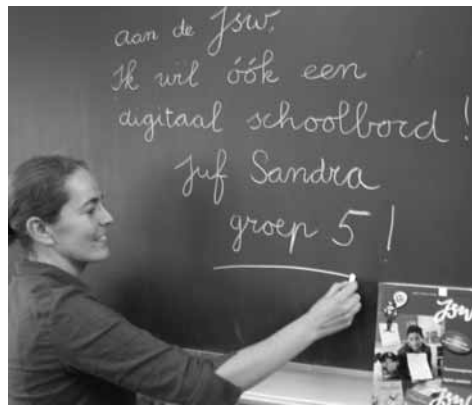 aan de Jsw,
Ik wil óók een
digitaal schoolbord!
Juf Sandra
groep 5!
Jsw
Jsw